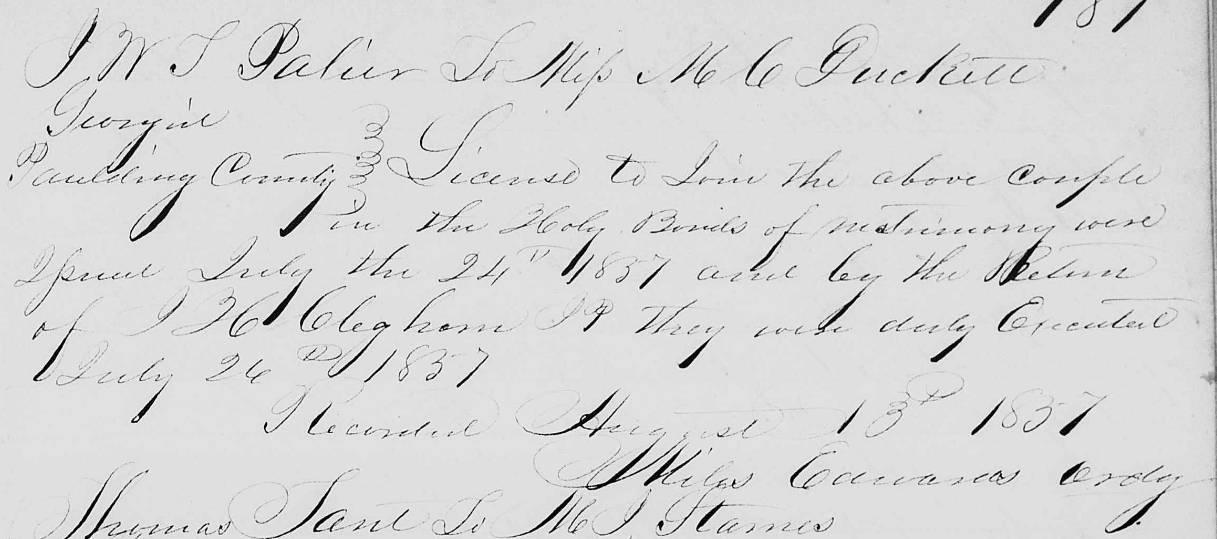 181
J W T Palier To Miss M C Duckett
Georgia
Paulding County License to Join the above couple
in the Holy Bonds of matrimony were
Issued July the 24th 1857 and by the Return
of J H Cleghorn JP they were duly Executed
July 26th 1857
Recorded August 13th 1857
Miles Edwards Ordy
Thomas Tant To M J Starnes